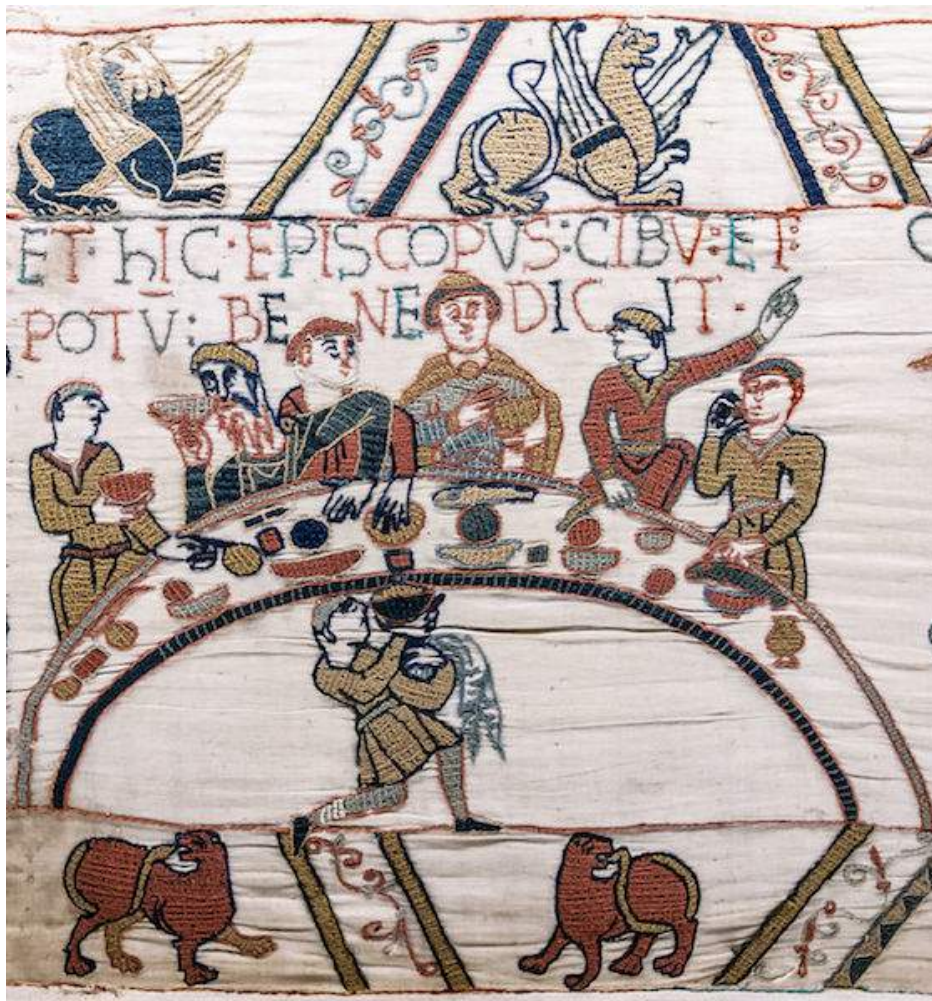 ET·hIC·EPISCOPVS:CIBV:ET:
POTV: BE NE DIC IT·